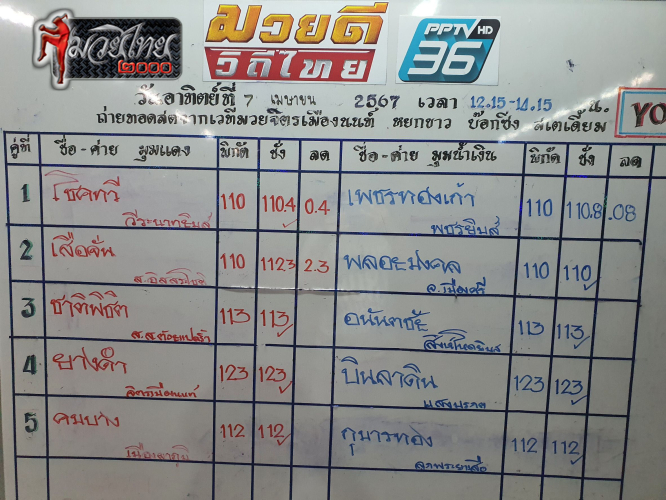 มวยไทย
๒๐๐๐
มวยดี
วิถีไทย
PPTV HD
36
วันอาทิตย์ที่ 7 เมษายน 2567 เวลา 12.15-14.15 น.
ถ่ายทอดสดจากเวทีมวยจิตรเมืองนนท์ หยกขาว บ๊อกซิ่ง สเตเดี้ยม
YO
คู่ที่ ชื่อ-ค่าย มุมแดง พิกัด ชั่ง ลด ชื่อ-ค่าย มุมน้ำเงิน พิกัด ชั่ง ลด
1 โชคทวี 110 110.4 0.4 เพชรทองเก้า 110 110.8 .08
วีระนาทยิมส์ พชรยิมส์
2 เสือจั่น 110 112.3 2.3 พลอะมงคล 110 110
3 ชาติพิชิต 113 113 อนันตชัย 113 113
4 ยางดำ 123 123 บินลาดิน 123 123
จิตรเมืองนนท์ แสงมรกต
5 คมบาง 112 112 กุมารทอง 112 112
ลูกพระยาเสือ